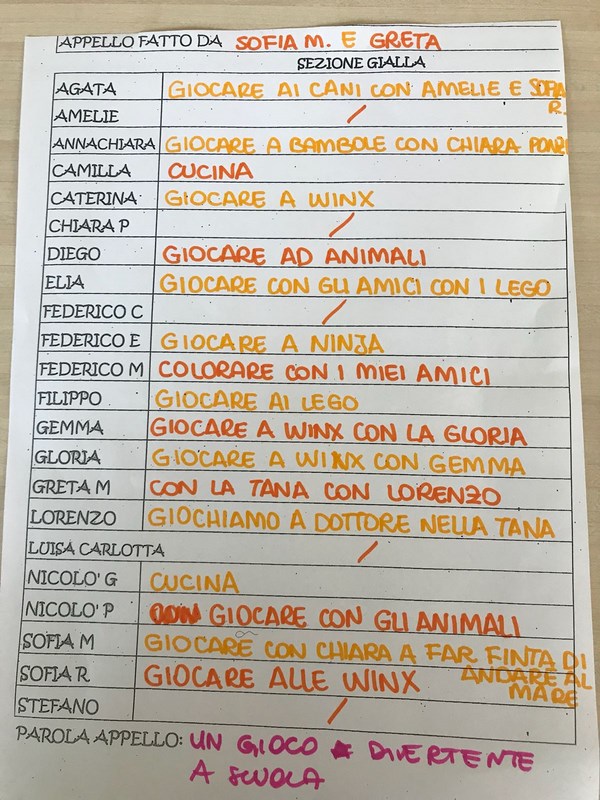 APPELLO FATTO DA SOFIA M. E GRETA
SEZIONE GIALLA
AGATA GIOCARE AI CANI CON AMELIE E SOFIA R.
AMELIE /
ANNACHIARA GIOCARE A BAMBOLE CON CHIARA
CAMILLA CUCINA
CATERINA GIOCARE A WINX
CHIARA P /
DIEGO GIOCARE AD ANIMALI
ELIA GIOCARE CON GLI AMICI CON I LEGO
FEDERICO C /
FEDERICO E GIOCARE A NINJA
FEDERICO M COLORARE CON I MIEI AMICI
FILIPPO GIOCARE AI LEGO
GEMMA GIOCARE A WINX CON LA GLORIA
GLORIA GIOCARE A WINX CON GEMMA
GRETA M CON LA TANA CON LORENZO
LORENZO GIOCHIAMO A DOTTORE NELLA TANA
LUISA CARLOTTA /
NICOLO' G CUCINA
NICOLO' P GIOCARE CON GLI ANIMALI
SOFIA M GIOCARE CON CHIARA A FAR FINTA DI
ANDARE AL
MARE
SOFIA R GIOCARE ALLE WINX
STEFANO /
PAROLA APPELLO: UN GIOCO DIVERTENTE
A SCUOLA